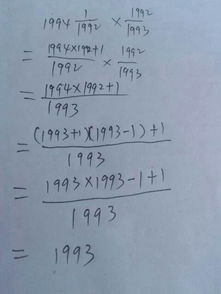 1994 1/1992 × 1992/1993
= (1994×1992+1)/1992 × 1992/1993
= (1994×1992+1)/1993
= ((1993+1)(1993-1)+1)/1993
= (1993×1993-1+1)/1993
= 1993